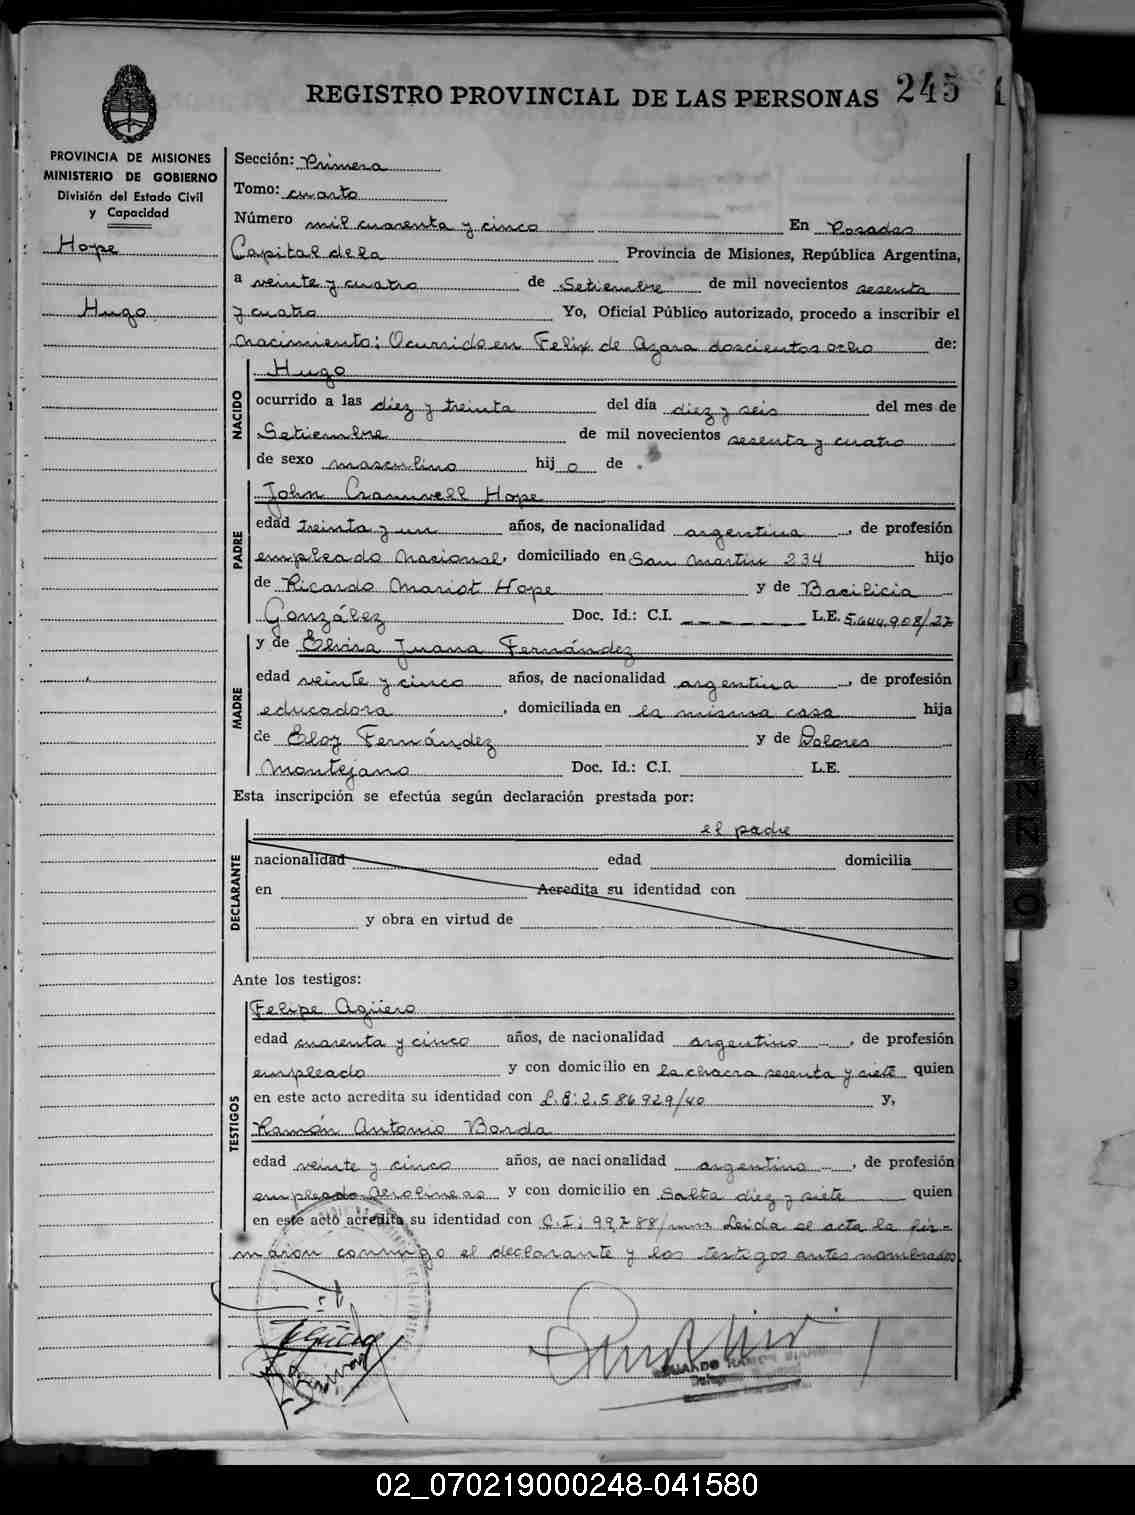 REGISTRO PROVINCIAL DE LAS PERSONAS 245
PROVINCIA DE MISIONES
MINISTERIO DE GOBIERNO
División del Estado Civil
y Capacidad
Hope
Hugo
Sección: Primera
Tomo: cuarto
Número mil cuarenta y cinco En Posadas
Capital de la Provincia de Misiones, República Argentina,
a veinte y cuatro de Setiembre de mil novecientos sesenta
y cuatro Yo, Oficial Público autorizado, procedo a inscribir el
Nacimiento: Ocurrido en Felix de Azara doscientos ocho de:
NACIDO
Hugo
ocurrido a las diez y treinta del día diez y seis del mes de
Setiembre de mil novecientos sesenta y cuatro
de sexo masculino hij o de
PADRE
John Cramwell Hope
edad treinta y un años, de nacionalidad argentina, de profesión
empleado Nacional, domiciliado en San Martin 234 hijo
de Ricardo Mariot Hope y de Bacilicia
González Doc. Id.: C.I. - - - - - - - L.E. 5.644.908/27
MADRE
y de Elvira Juana Fernández
edad veinte y cinco años, de nacionalidad argentina, de profesión
educadora, domiciliada en la misma casa hija
de Eloy Fernández y de Dolores
Montejano Doc. Id.: C.I. L.E.
Esta inscripción se efectúa según declaración prestada por:
DECLARANTE
el padre
nacionalidad edad domicilia
en Acredita su identidad con
y obra en virtud de
Ante los testigos:
TESTIGOS
Felipe Agüero
edad cuarenta y cinco años, de nacionalidad argentino, de profesión
empleado y con domicilio en la chacra sesenta y siete quien
en este acto acredita su identidad con L.E: 2.586.929/40 y,
Ramón Antonio Borda
edad veinte y cinco años, de nacionalidad argentino, de profesión
empleado Aerolineas y con domicilio en Salta diez y siete quien
en este acto acredita su identidad con C.I: 99,788/mm Leida el acta la fir-
maron conmigo el declarante y los testigos antes nombrados.
02_070219000248-041580